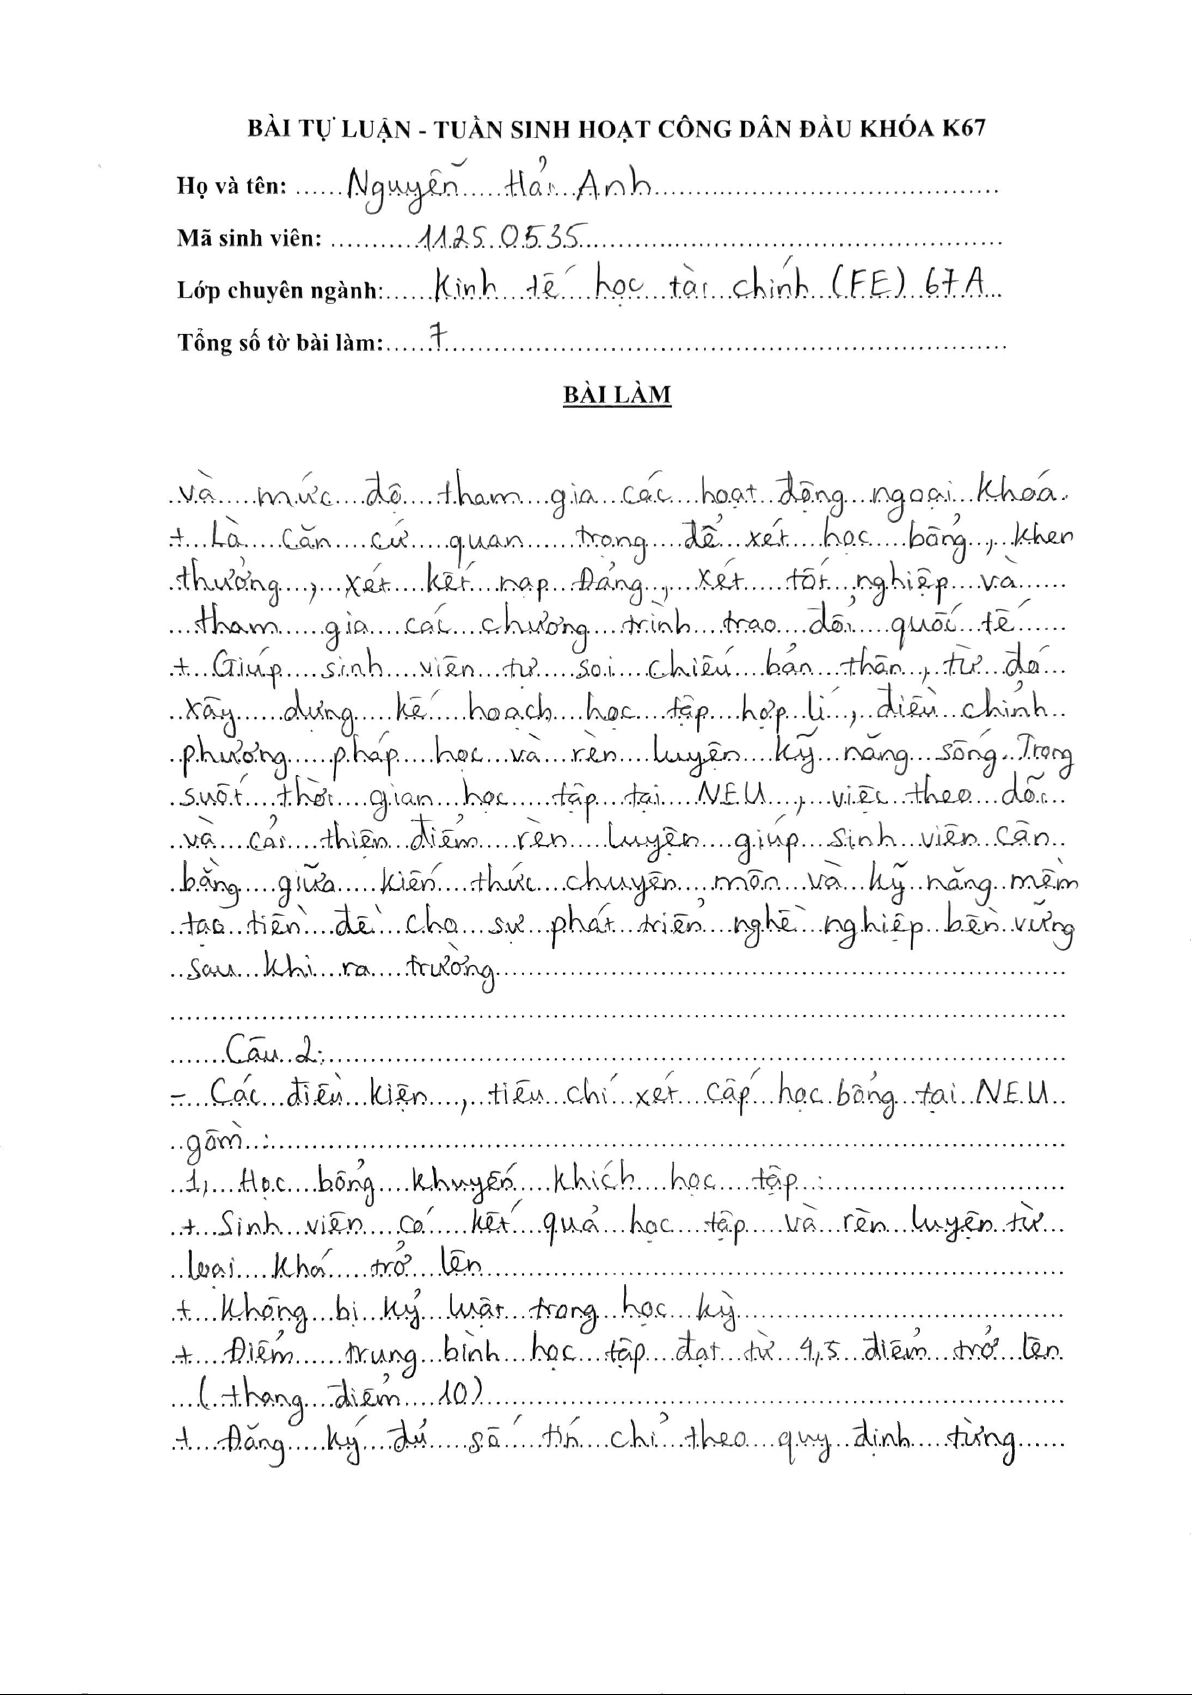 BÀI TỰ LUẬN - TUẦN SINH HOẠT CÔNG DÂN ĐẦU KHÓA K67
Họ và tên: Nguyễn Hải Anh
Mã sinh viên: 11250535
Lớp chuyên ngành: Kinh tế học tài chính (FE) 67A
Tổng số tờ bài làm: 7
BÀI LÀM
và mức độ tham gia các hoạt động ngoại khoá.
+ Là căn cứ quan trọng để xét học bổng, khen
thưởng, xét kết nạp Đảng, xét tốt nghiệp và
tham gia các chương trình trao đổi quốc tế
+ Giúp sinh viên tự soi chiếu bản thân, từ đó
xây dựng kế hoạch học tập hợp lí, điều chỉnh
phương pháp học và rèn luyện kỹ năng sống. Trong
suốt thời gian học tập tại NEU, việc theo dõi
và cải thiện điểm rèn luyện giúp sinh viên cân
bằng giữa kiến thức chuyên môn và kỹ năng mềm
tạo tiền đề cho sự phát triển nghề nghiệp bền vững
sau khi ra trường
Câu 2:
- Các điều kiện, tiêu chí xét cấp học bổng tại NEU
gồm:
1, Học bổng khuyến khích học tập:
+ Sinh viên có kết quả học tập và rèn luyện từ
loại khá trở lên
+ Không bị kỷ luật trong học kỳ
+ Điểm trung bình học tập đạt từ 4,5 điểm trở lên
(thang điểm 10)
+ Đăng ký đủ số tín chỉ theo quy định từng